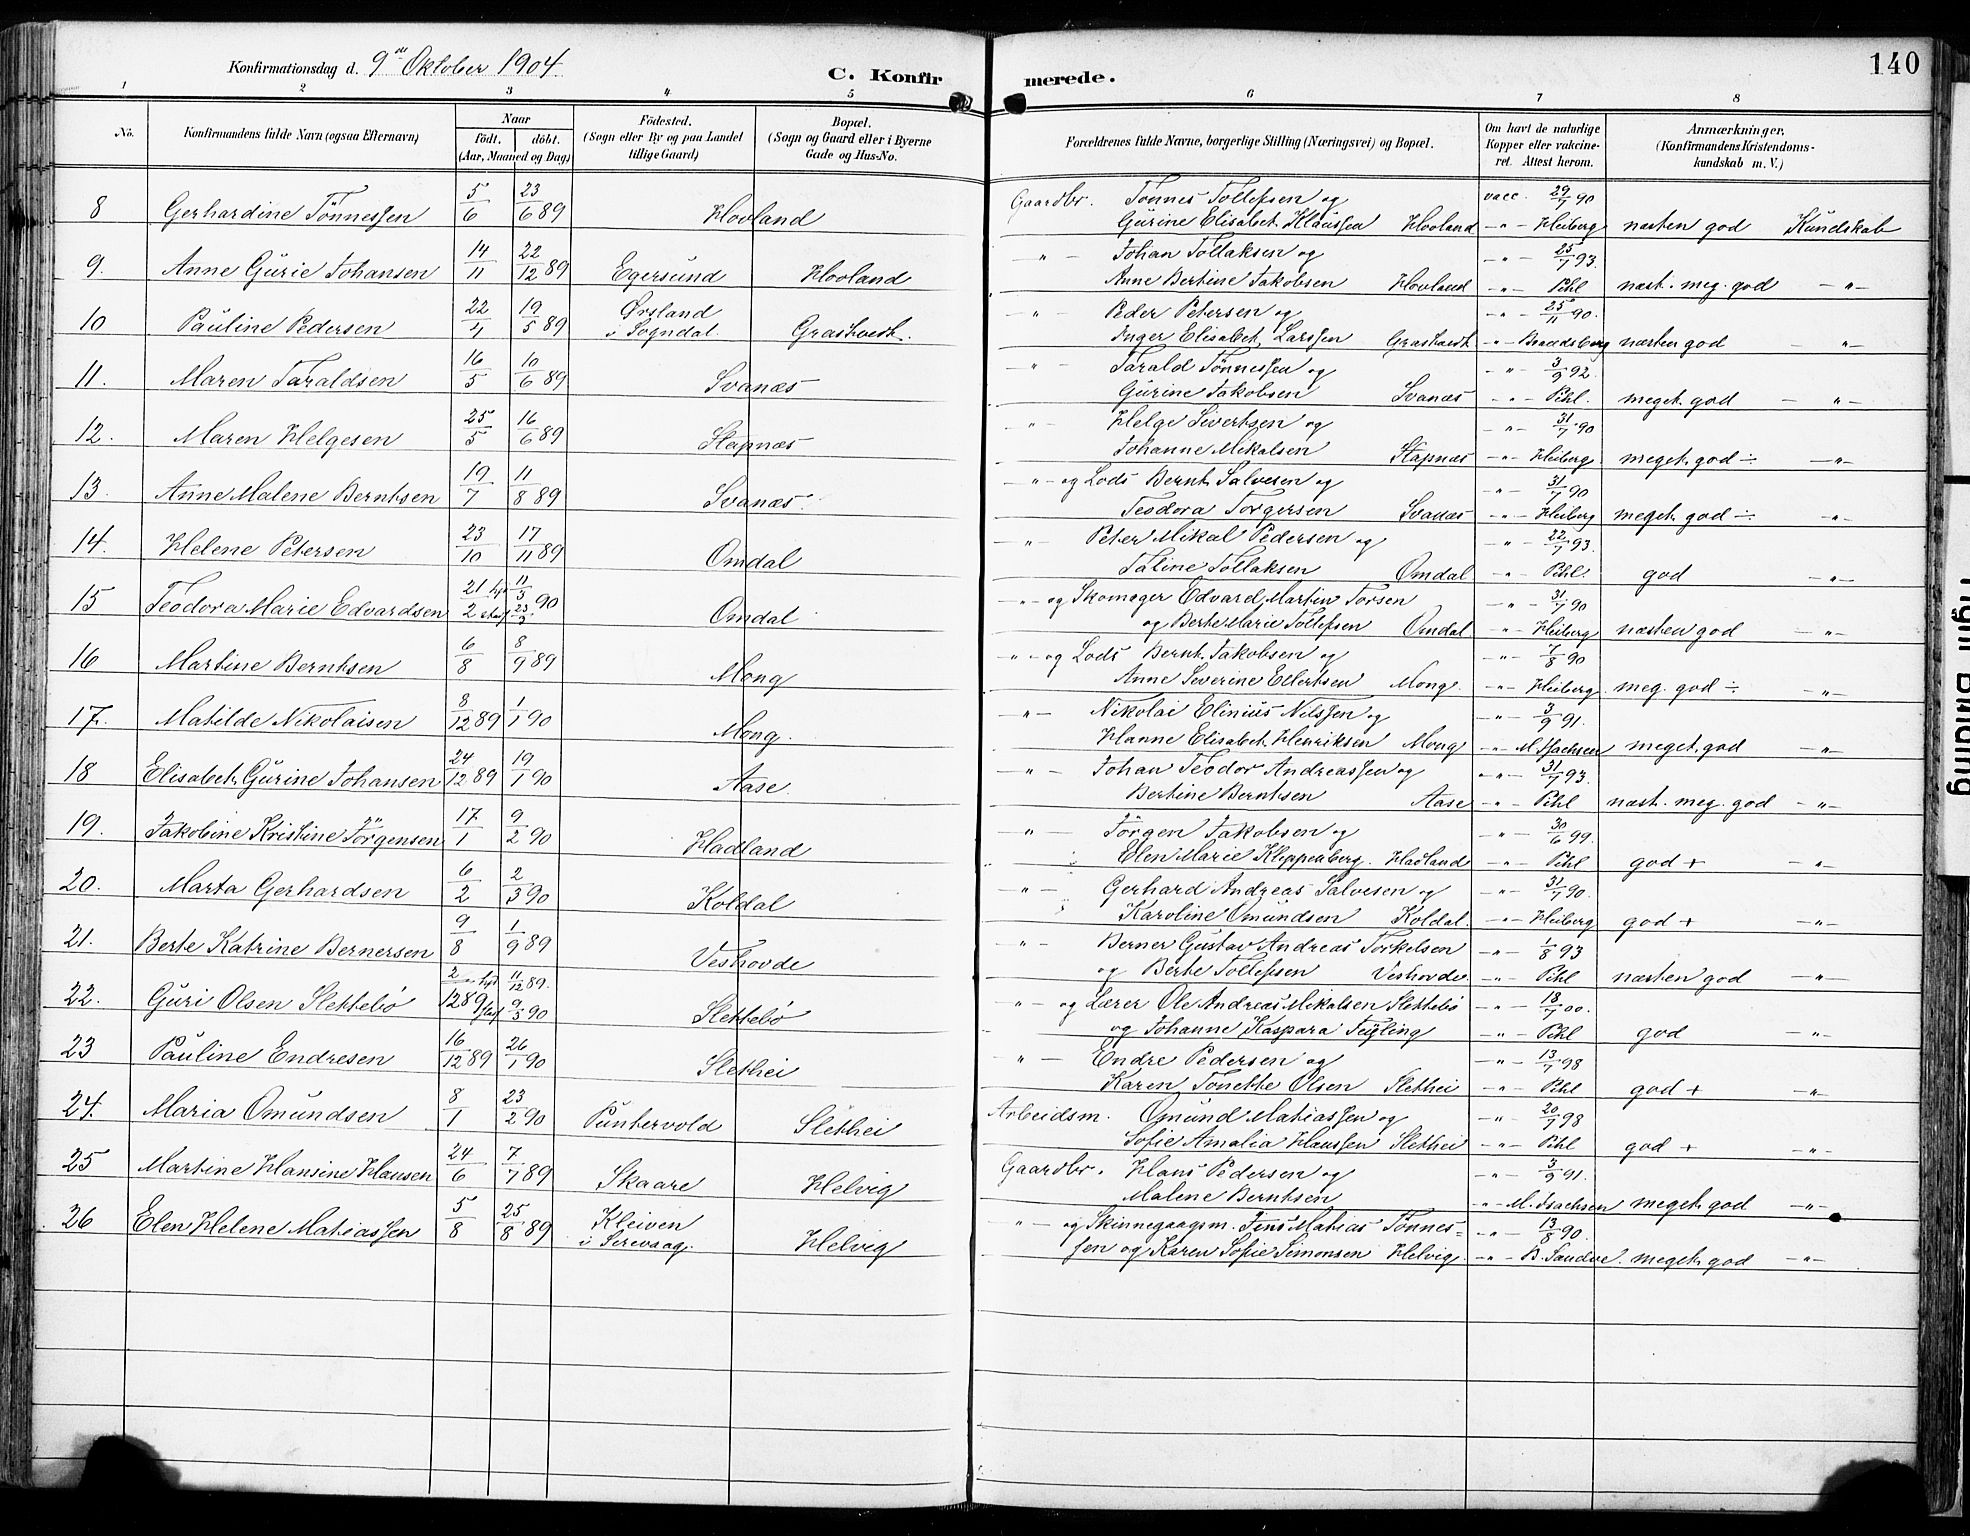 Konfirmationsdag d. 9de Oktober 1904.
C. Konfirmerede.
140
1 2 3 4 5 6 7 8
No.
Konfirmandens fulde Navn (ogsaa Efternavn)
Naar
født. døbt.
(Aar, Maaned og Dag)
Fødested.
(Sogn eller By og paa Landet
tillige Gaard)
Bopæl.
(Sogn og Gaard eller i Byerne
Gade og Hus-No.
Forældrenes fulde Navne, borgerlige Stilling (Næringsvei) og Bopæl.
Om havt de naturlige
Kopper eller vakcine-
ret. Attest herom.
Anmærkninger.
(Konfirmandens Kristendoms-
kundskab m. V.)
8 Gerhardine Tönnessen 5/6 23/6 89 Hovland Gaardbr. Tönnes Tollefsen og vacc. 29/7 90
Gurine Elisabet Klaussen Hovland -"- Heiberg næsten god Kundskab
9. Anne Gurie Johansen 14/11 22/12 89 Egersund Hovland -"- Johan Tollaksen og -"- 25/7 93.
Anne Bertine Jakobsen Hovland -"- Pihl næst. meg. god -"-
10 Pauline Pedersen 22/4 19/5 89 Ørsland i Sogndal Grastveit. -"- Peder Petersen og -"- 25/11 90.
Inger Elisabet Larssen Grastveit -"- næsten god -"-
11. Maren Taraldsen 16/5 10/6 89 Svanæs -"- Tarald Tönnessen og -"- 3/9 92.
Gurine Jakobsen Svanæs -"- Pihl. meget god -"-
12. Maren Helgesen 25/5 16/6 89 Stapnæs -"- Helge Sivertsen og -"- 31/7 90
Johanne Mikalsen Stapnæs -"- Heiberg meget god ÷ -"-
13. Anne Malene Berntsen 19/7 11/8 89 Svanæs. -"- og Lods Bernt Salvesen og -"- 31/7 90
Teodora Torgersen Svanæs -"- Heiberg meget god ÷ -"-
14. Helene Petersen 23/10 17/11 89 Omdal -"- Peter Mikal Pedersen og -"- 22/7 93.
Taline Tollaksen Omdal -"- Pihl. god -"-
15 Teodora Marie Edvardsen 21 2 11/3 23/3 90 Omdal -"- og Skomager Edvard Martin Torsen -"- 31/7 90
og Berte Marie Tollefsen Omdal -"- Heiberg næsten god -"-
16 Martine Berntsen 6/8 8/9 89 Mong -"- og Lods Bernt Jakobsen og -"- 7/8 90
Anne Severine Ellertsen Mong. -"- Heiberg. meg. god ÷ -"-
17. Matilde Nikolaisen 8/12 89 1/1 90 Mong. -"- Nikolai Elinius Nilssen og -"- 3/9 91.
Hanne Elisabet Henriksen Mong -"- M. Isachsen meget god -"-
18 Elisabet Gurine Johansen 24/12 89 19/1 90 Aase. -"- Johan Teodor Andreassen og -"- 31/7 93.
Bertine Berntsen Aase -"- Pihl næst. meg. god -"-
19. Jakobine Kristine Jörgensen 17/1 9/2 90 Hadland -"- Jörgen Jakobsen og -"- 30/6 99.
Elen Marie Kleppenberg. Hadland -"- Pihl god + -"-
20. Marta Gerhardsen 6/2 2/3 90 Koldal -"- Gerhard Andreas Salvesen og -"- 31/7 90.
Karoline Omundsen Koldal. -"- Heiberg god + -"-
21. Berte Katrine Bernersen 9/8 1/9 89 Veshovde -"- Berner Gustav Andreas Torkelsen -"- 1/8 93
og Berte Tollefsen Veshovde -"- Pihl næsten god -"-
22. Guri Olsen Slettebö 2/12 89 11/12 89. 9/3 90 Slettebö -"- og Lærer Ole Andreas Mikalsen Slettebö -"- 18/7 00.
og Johanne Kaspara Tegling -"- Pihl god -"-
23 Pauline Endresen 16/12 89 26/1 90 Slethei -"- Endre Pedersen og -"- 13/7 98
Karen Tonette Olsen Slethei -"- Pihl god + -"-
24. Maria Omundsen 8/1 23/2 90 Puntervold Slethei Arbeidsm. Omund Matiassen og -"- 20/7 98
Sofie Amalia Hanssen Slethei -"- Pihl god + -"-
25 Martine Hansine Hansen 24/6 7/7 89 Skaare Helvig Gaardbr. Hans Pedersen og -"- 3/9 91.
Malene Berntsen -"- M. Isachsen meget god -"-
26 Elen Helene Matiassen 5/8 25/8 89 Kleiven i Sirevaag. Helvig -"- og Skinnegangsm. Jens Matias Tönnes- -"- 13/8 90.
sen og Karen Sofie Simonsen Helvig. -"- B. Sandve. meget god -"-